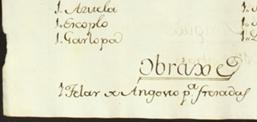 1. Azuela
1. Escoplo
1. Garlopa
Obraxe
1. Telar de Angovio pa frezadas